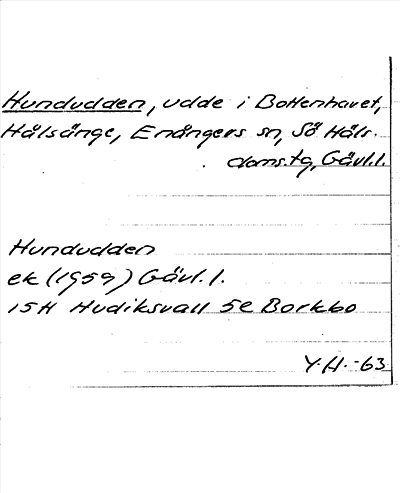 Hundudden, udde i Bottenhavet,
Hälsänge, Enångers sn, Sö Häls.
doms.tg, Gävl.l.
Hundudden
ek (1959) Gävl.l.
15H Hudiksvall 5e Borkbo
Y.H.-63